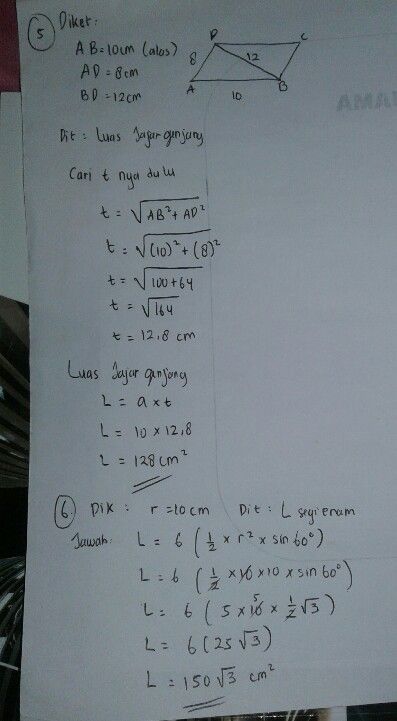 5 Diket:
AB = 10 cm (alas)
AD = 8 cm
BD = 12 cm
D C
8 12
A B
10
Dit : Luas Jajar genjang
Cari t nya dulu
t = √AB² + AD²
t = √(10)² + (8)²
t = √100+64
t = √164
t = 12,8 cm
Luas Jajar genjang
L = a x t
L = 10 x 12,8
L = 128 cm²
6. Dik : r = 10 cm Dit : L segienam
Jawab: L = 6 (1/2 x r² x sin 60°)
L = 6 (1/2 x 10 x 10 x sin 60°)
L = 6 (5 x 10 5 x 1/2 √3)
L = 6 (25 √3)
L = 150 √3 cm²